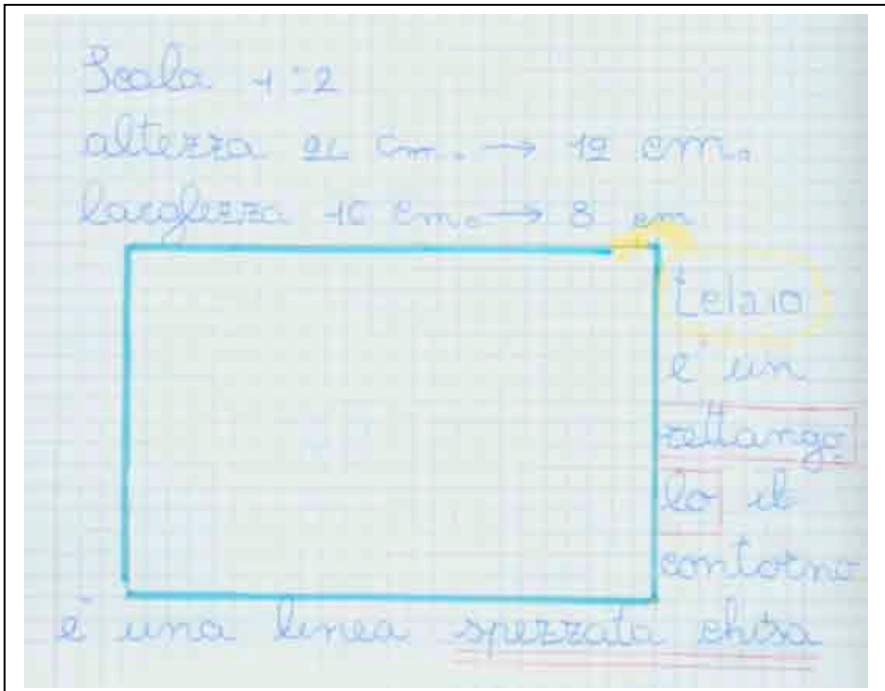 Scala 1:2
altezza 24 cm. → 12 cm.
larghezza 16 cm. → 8 cm
telaio
è un
rettango
lo il
contorno
è una linea spezzata chisa